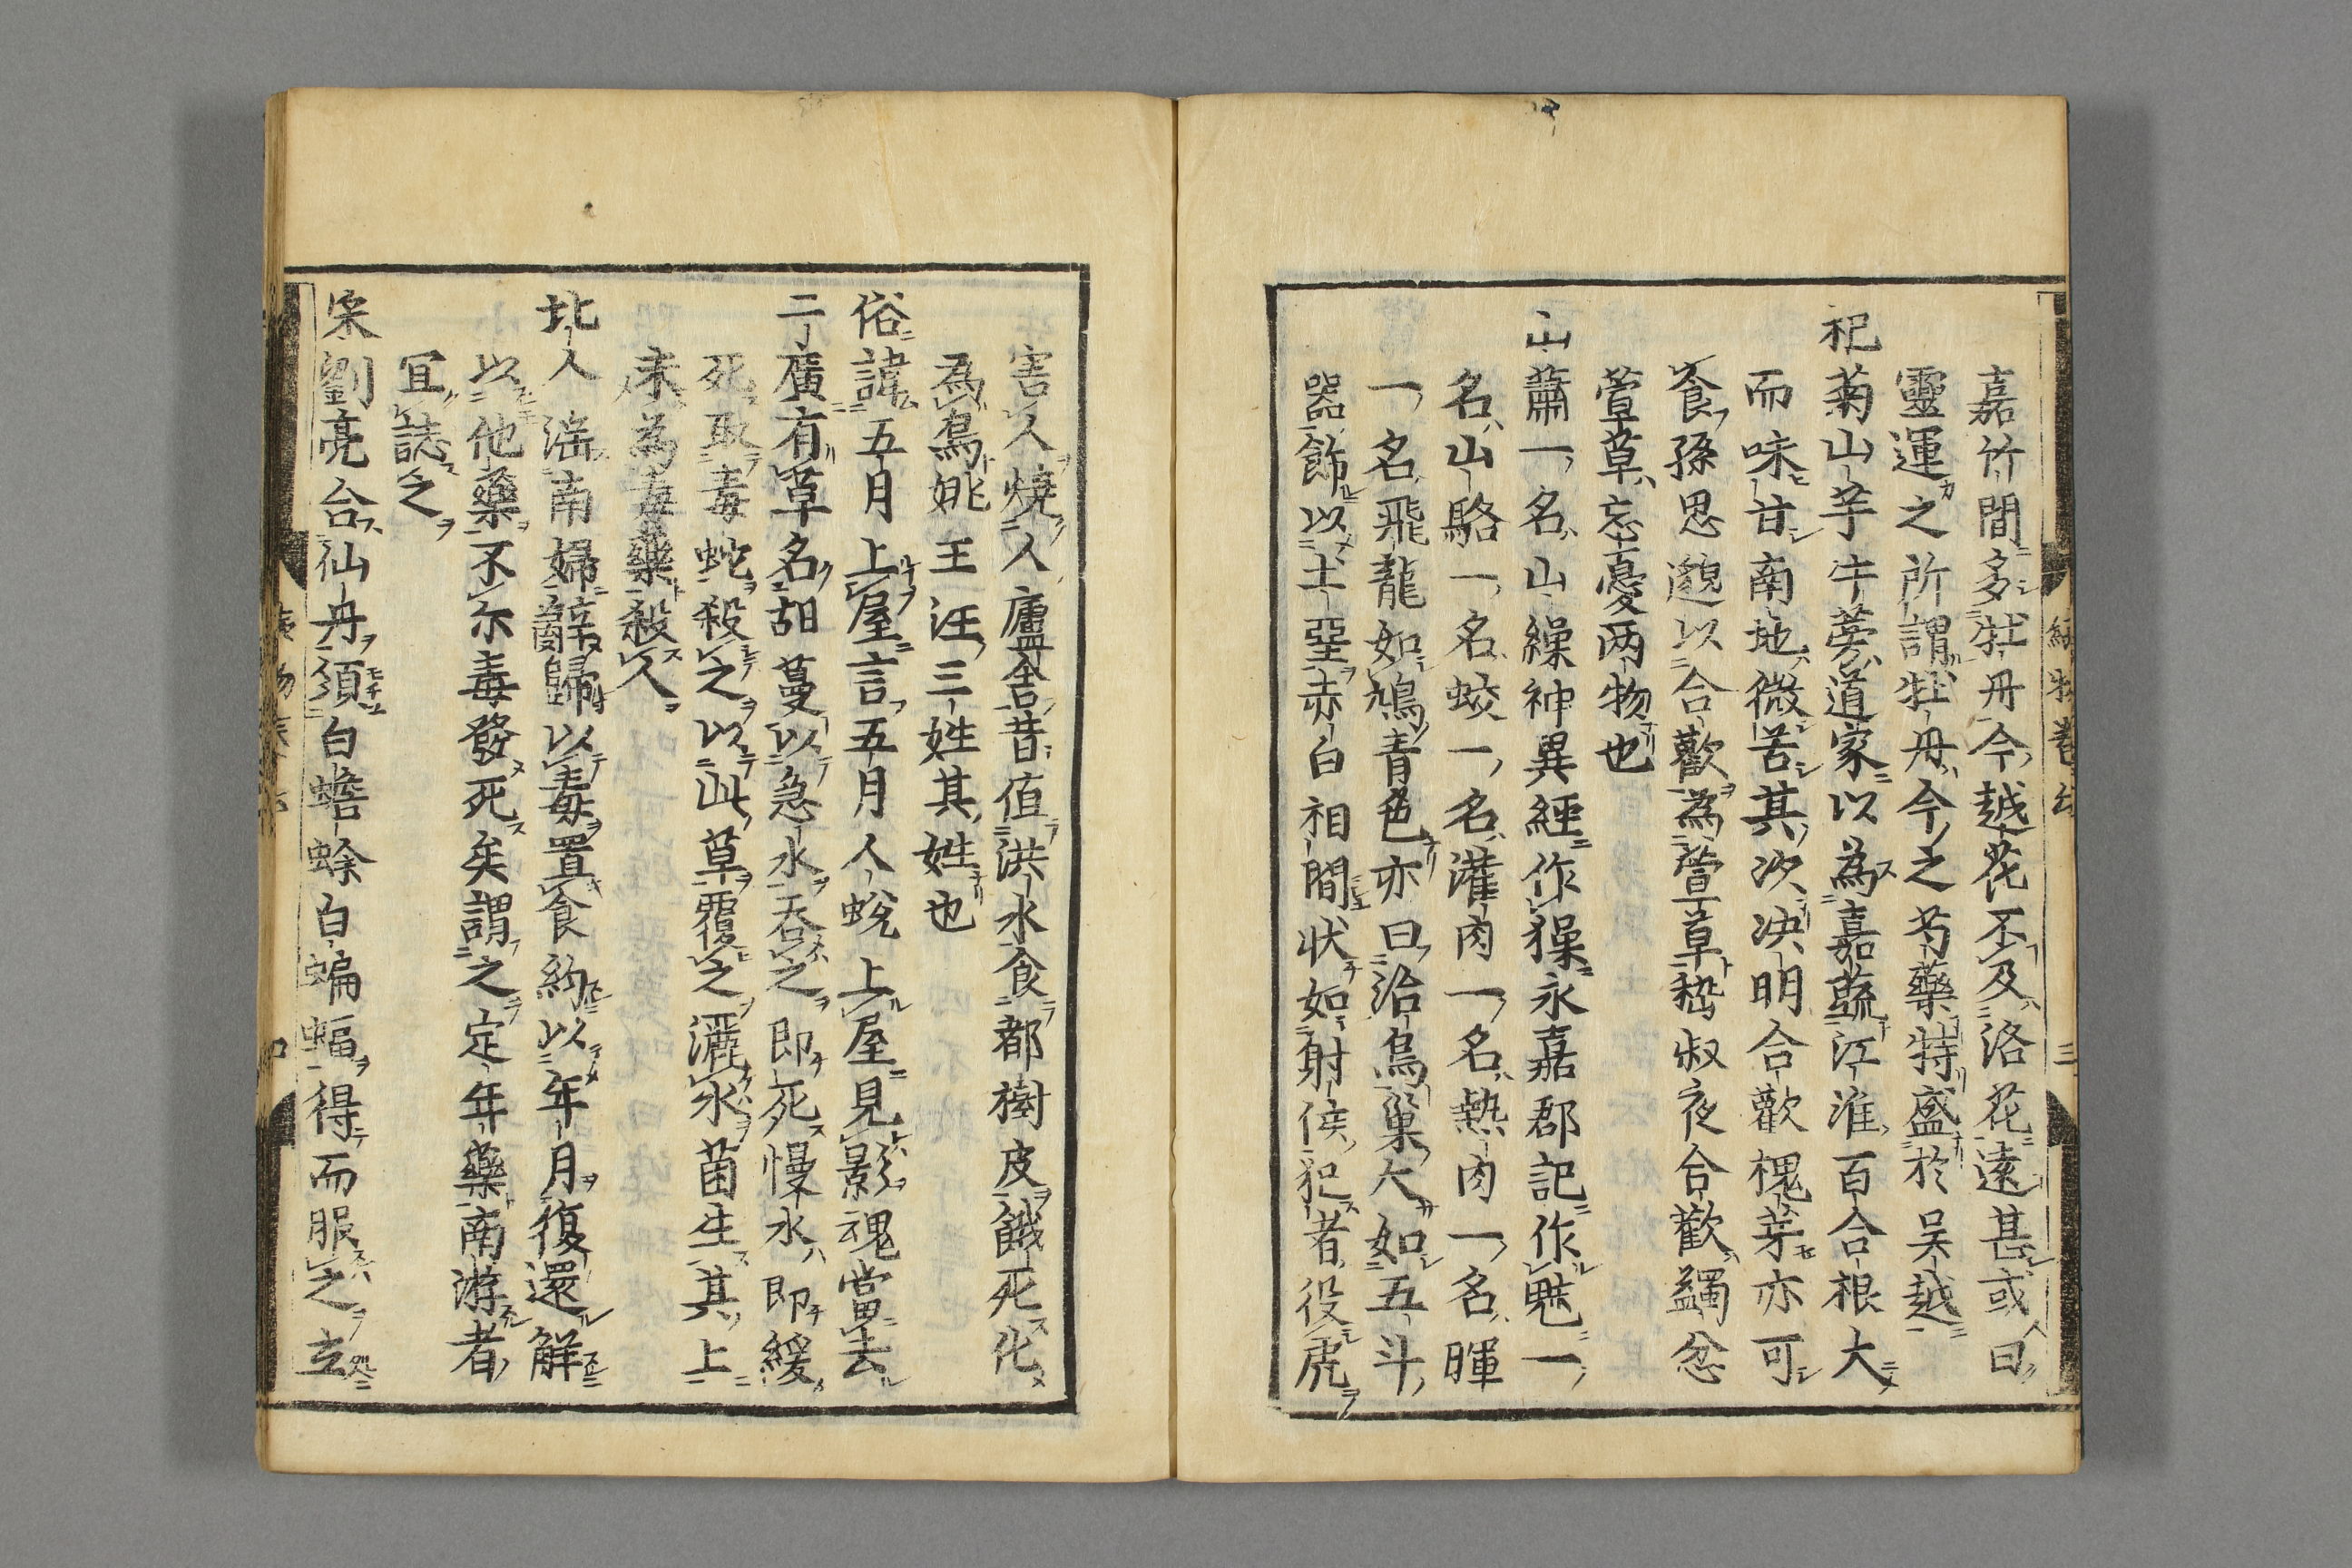 嘉竹間多牡丹今越花不及洛花遠甚或曰
靈運之所謂牡丹今之芍藥特盛於吴越
祀菊山芋牛蒡道家以為嘉蔬江淮百合根大
而味甘南地微苦其次决明合歡槐芽亦可
食孫思邈以合歡為萱草嵇叔夜合歡蠲忿
萱草忘憂两物也
山蕭一名山繰神異經作㺐永嘉郡記作魅一
名山駱一名蛟一名濯肉一名熱肉一名暉
一名飛龍如鳩青色亦曰治鳥巢大如五斗
器飾以土堊赤白相間狀如射侯犯者役虎
害人燒人廬舎昔值洪水食都樹皮餓死化
為鳥姚王汪三姓其姓也
俗諱五月上屋言五月人蛻上屋見影魂當去
二廣有草名胡蔓以急水吞之即死慢水即緩
死取毒蛇殺之以此草覆之灑水菌生其上
末為毒藥殺人
北人滛南婦辭歸以毒置食約以年月復還解
以他藥不尓毒發死矣謂之定年藥南游者
宜誌之
宋劉亮合仙丹須白蟾蜍白蝙蝠得而服之立